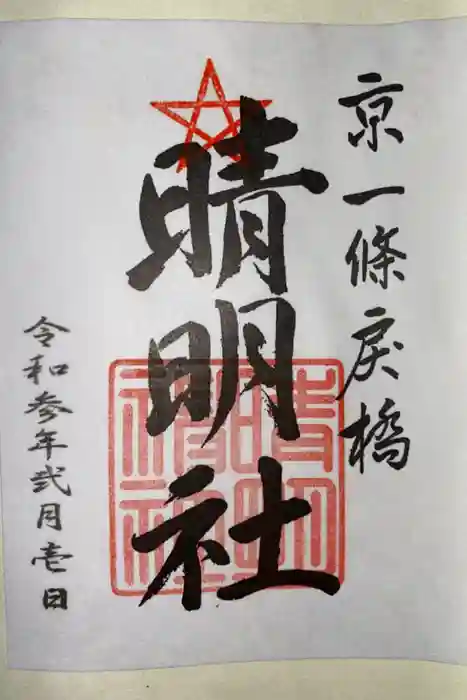 京一條戻橋
晴明社
晴明神社
令和参年弐月壱日